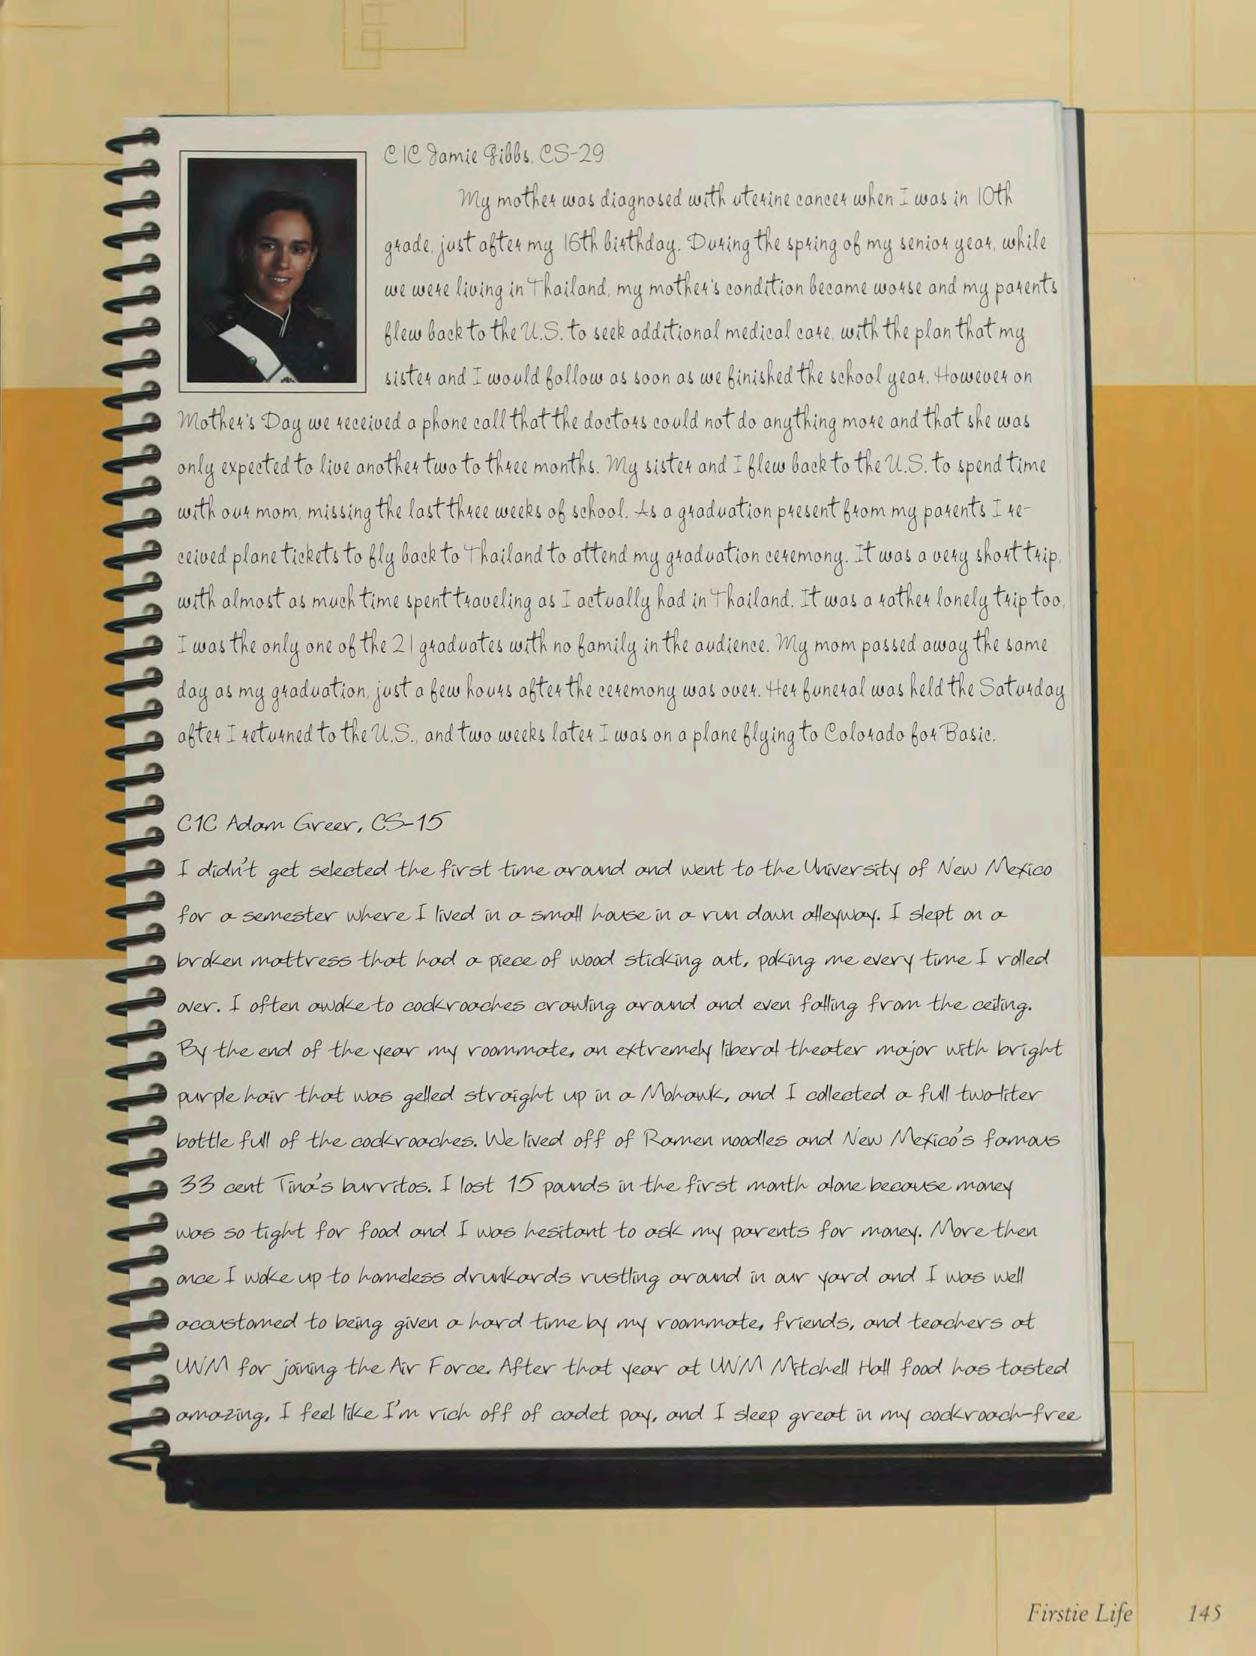 C1C Jamie Gibbs, CS-29
My mother was diagnosed with uterine cancer when I was in 10th
grade, just after my 16th birthday. During the spring of my senior year, while
we were living in Thailand, my mother's condition became worse and my parents
flew back to the U.S. to seek additional medical care, with the plan that my
sister and I would follow as soon as we finished the school year. However on
Mother's Day we received a phone call that the doctors could not do anything more and that she was
only expected to live another two to three months. My sister and I flew back to the U.S. to spend time
with our mom, missing the last three weeks of school. As a graduation present from my parents I re-
ceived plane tickets to fly back to Thailand to attend my graduation ceremony. It was a very short trip,
with almost as much time spent traveling as I actually had in Thailand. It was a rather lonely trip too,
I was the only one of the 21 graduates with no family in the audience. My mom passed away the same
day as my graduation, just a few hours after the ceremony was over. Her funeral was held the Saturday
after I returned to the U.S., and two weeks later I was on a plane flying to Colorado for Basic.
C1C Adam Greer, CS-15
I didn't get selected the first time around and went to the University of New Mexico
for a semester where I lived in a small house in a run down alleyway. I slept on a
broken mattress that had a piece of wood sticking out, poking me every time I rolled
over. I often awoke to cockroaches crawling around and even falling from the ceiling.
By the end of the year my roommate, an extremely liberal theater major with bright
purple hair that was gelled straight up in a Mohawk, and I collected a full two-liter
bottle full of the cockroaches. We lived off of Ramen noodles and New Mexico's famous
33 cent Tina's burritos. I lost 15 pounds in the first month alone because money
was so tight for food and I was hesitant to ask my parents for money. More then
once I woke up to homeless drunkards rustling around in our yard and I was well
accustomed to being given a hard time by my roommate, friends, and teachers at
UNM for joining the Air Force. After that year at UNM Mitchell Hall food has tasted
amazing, I feel like I'm rich off of cadet pay, and I sleep great in my cockroach-free
Firstie Life 145